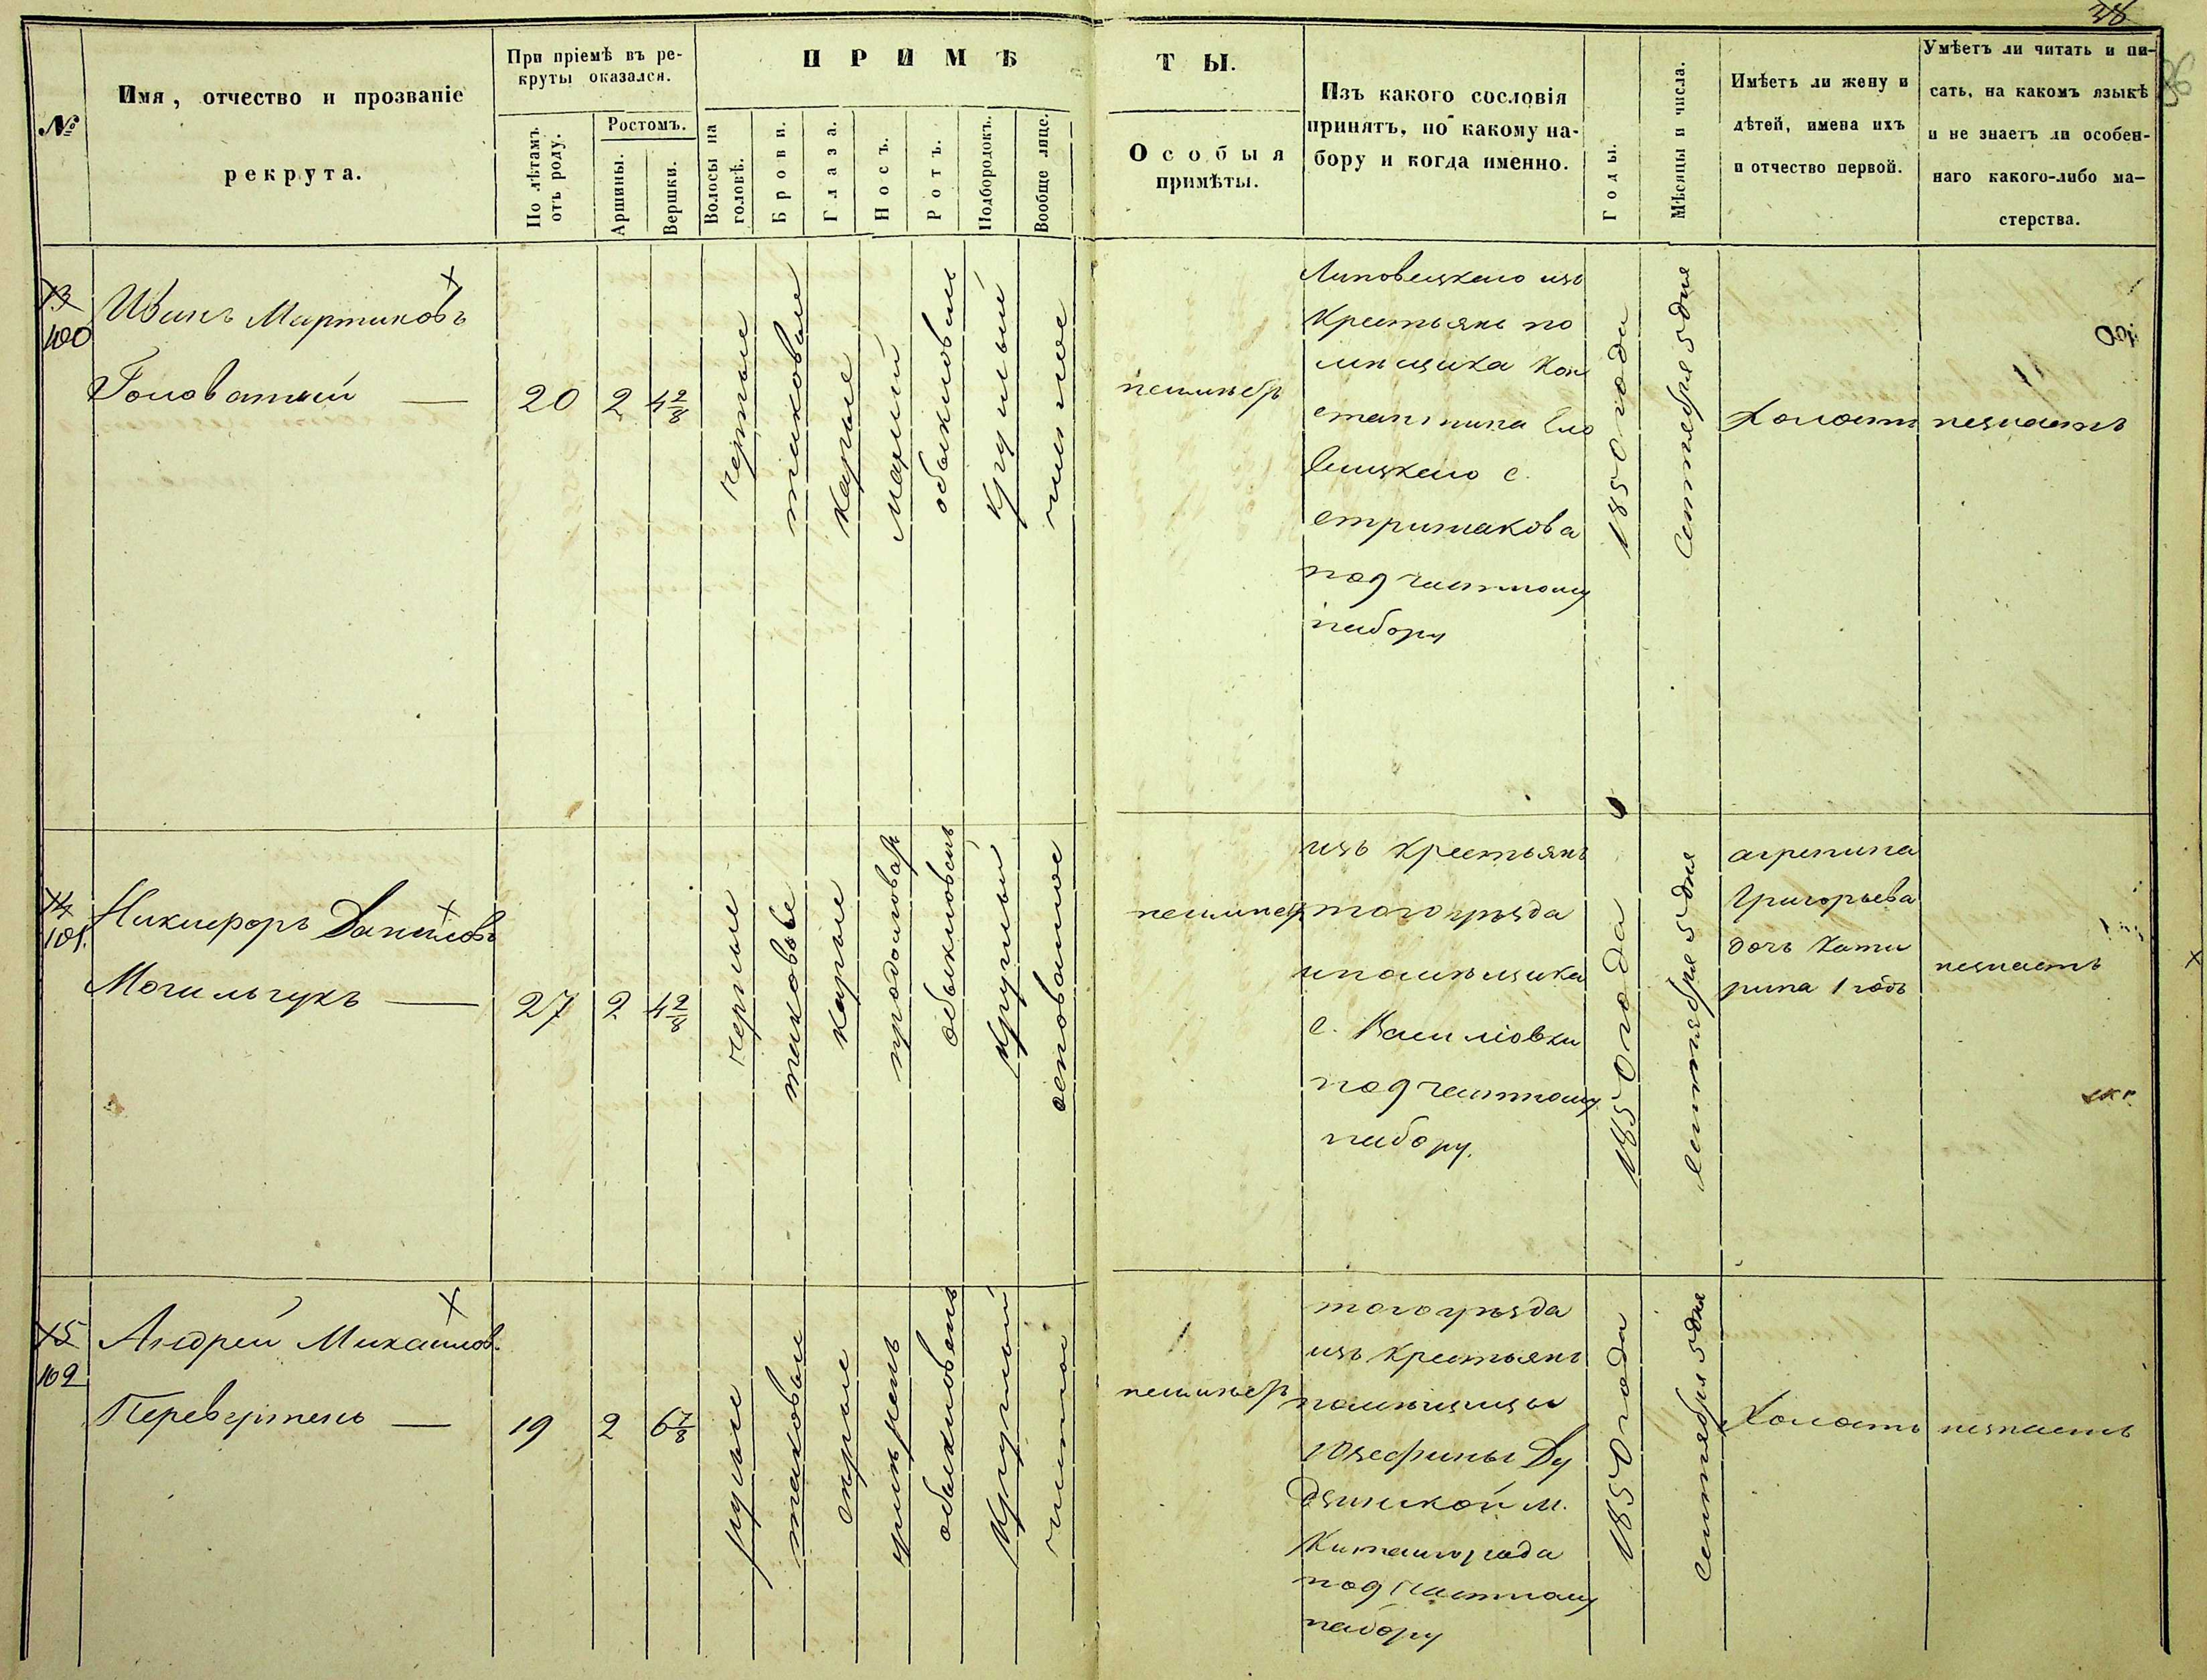 38
№
Имя, отчество и прозваніе
рекрута.
При пріемѣ въ ре-
круты оказался.
По лѣтамъ
отъ роду.
Ростомъ.
Аршины.
Вершки.
ПРИМѢ
ТЫ.
Волосы на
головѣ.
Брови.
Глаза.
Носъ.
Ротъ.
Подбородокъ.
Вообще лице.
Особыя
примѣты.
Изъ какого сословія
принятъ, по какому на-
бору и когда именно.
Годы.
Мѣсяцы и числа.
Имѣетъ ли жену и
дѣтей, имена ихъ
и отчество первой.
Умѣетъ ли читать и пи-
сать, на какомъ языкѣ
и не знаетъ ли особен-
наго какого-либо ма-
стерства.
13
100
Иванъ Мартиновъ
Головатый —
20
2
4 2/8
черные
таковые
карые
малый
обыкновен
круглый
чистое
Липовецкаго изъ
Крестьянъ по
мѣщика Кон
стантина
с.
стрижакова
под частному
набору
1850 года
Сентября 5 дня
Холостъ
незнаетъ
14
101.
Никифоръ Даниловъ
Могильчукъ —
27
2
4 2/8
черные
таковые
карые
продолговат
обыкновенъ
круглый
осповатое
изъ крестьянъ
того уѣзда
ипомѣщика
с. Василювки
под частному
набору.
1850 года
Сентября 5 дня
агрепина
Григорьева
дочь Кате
рина 1 годъ
незнаетъ
15
102
Андрей Михайлов.
Перевертень —
19
2
6 7/8
русые
таковые
серые
умѣренъ
обыкновенъ
круглый
чистое
того уѣзда
изъ Крестьянъ
помѣщицы
Юзефины Ду
дзинской м.
Китайгорода
под частному
набору
1850 года
Сентября 5 дня
Холостъ
незнаетъ